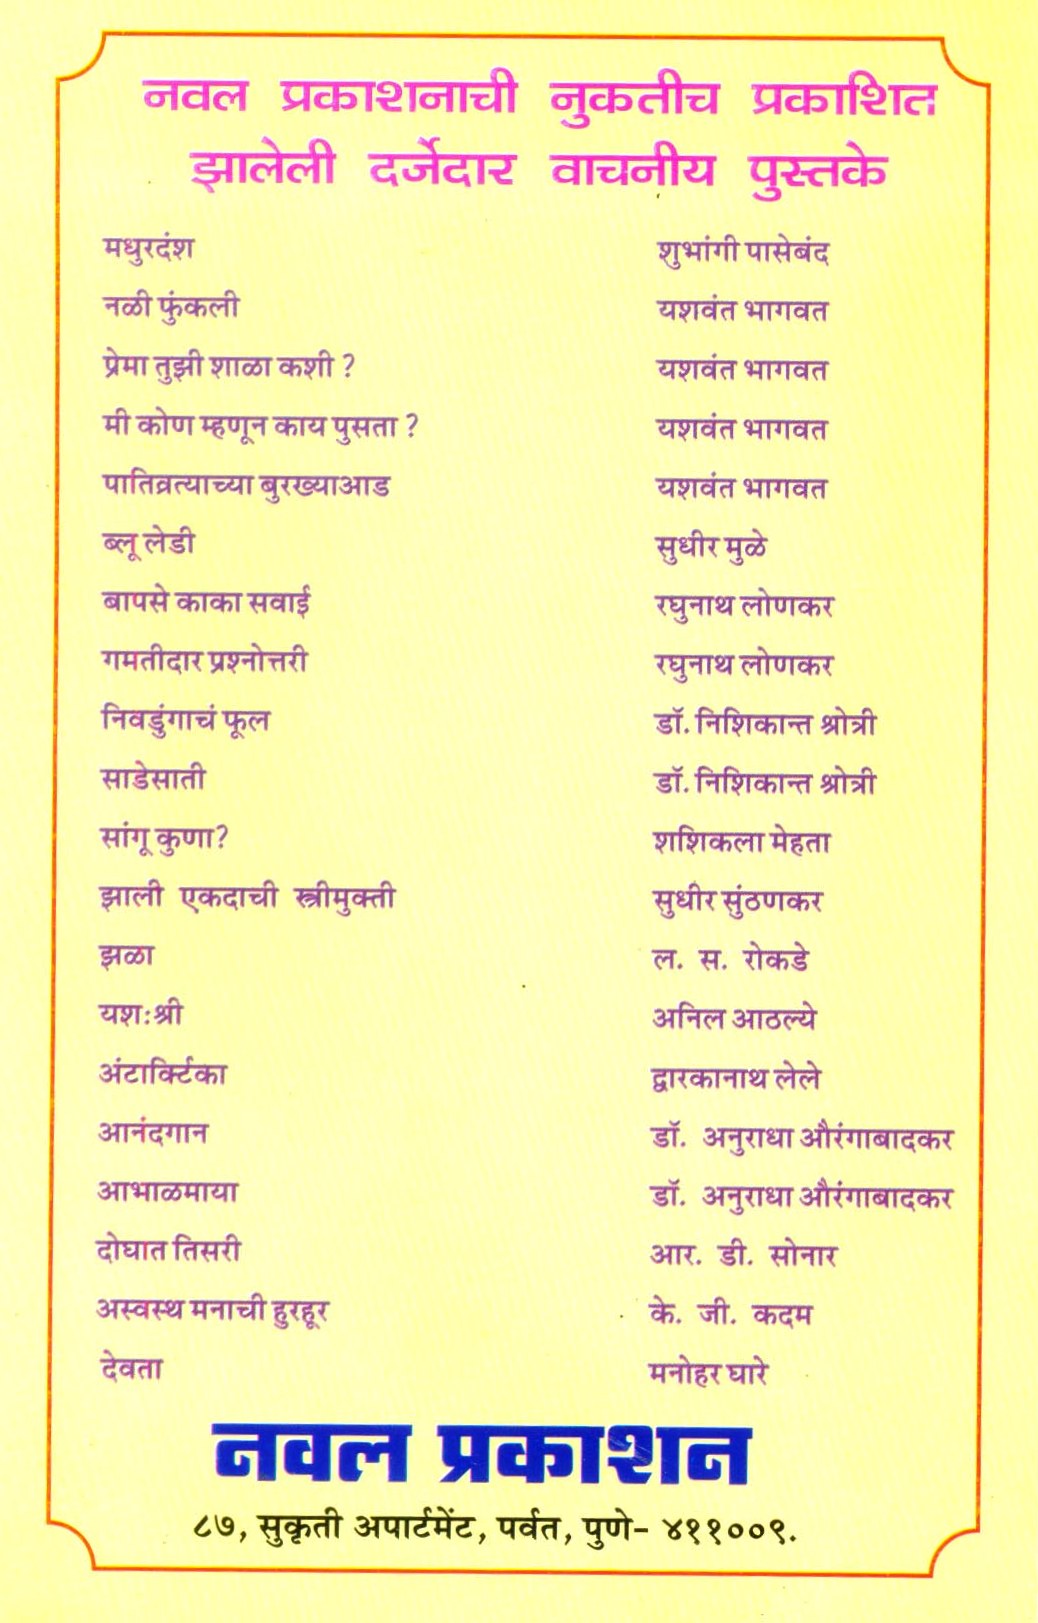 नवल प्रकाशनाची नुकतीच प्रकाशित
झालेली दर्जेदार वाचनीय पुस्तके
मधुरदंश शुभांगी पासेबंद
नळी फुंकली यशवंत भागवत
प्रेमा तुझी शाळा कशी ? यशवंत भागवत
मी कोण म्हणून काय पुसता ? यशवंत भागवत
पातिव्रत्याच्या बुरख्याआड यशवंत भागवत
ब्लू लेडी सुधीर मुळे
बापसे काका सवाई रघुनाथ लोणकर
गमतीदार प्रश्नोत्तरी रघुनाथ लोणकर
निवडुंगाचं फूल डॉ. निशिकान्त श्रोत्री
साडेसाती डॉ. निशिकान्त श्रोत्री
सांगू कुणा? शशिकला मेहता
झाली एकदाची स्त्रीमुक्ती सुधीर सुंठणकर
झळा ल. स. रोकडे
यशःश्री अनिल आठल्ये
अंटार्क्टिका द्वारकानाथ लेले
आनंदगान डॉ. अनुराधा औरंगाबादकर
आभाळमाया डॉ. अनुराधा औरंगाबादकर
दोघात तिसरी आर. डी. सोनार
अस्वस्थ मनाची हुरहूर के. जी. कदम
देवता मनोहर घारे
नवल प्रकाशन
८७, सुकृती अपार्टमेंट, पर्वत, पुणे- ४११००९.